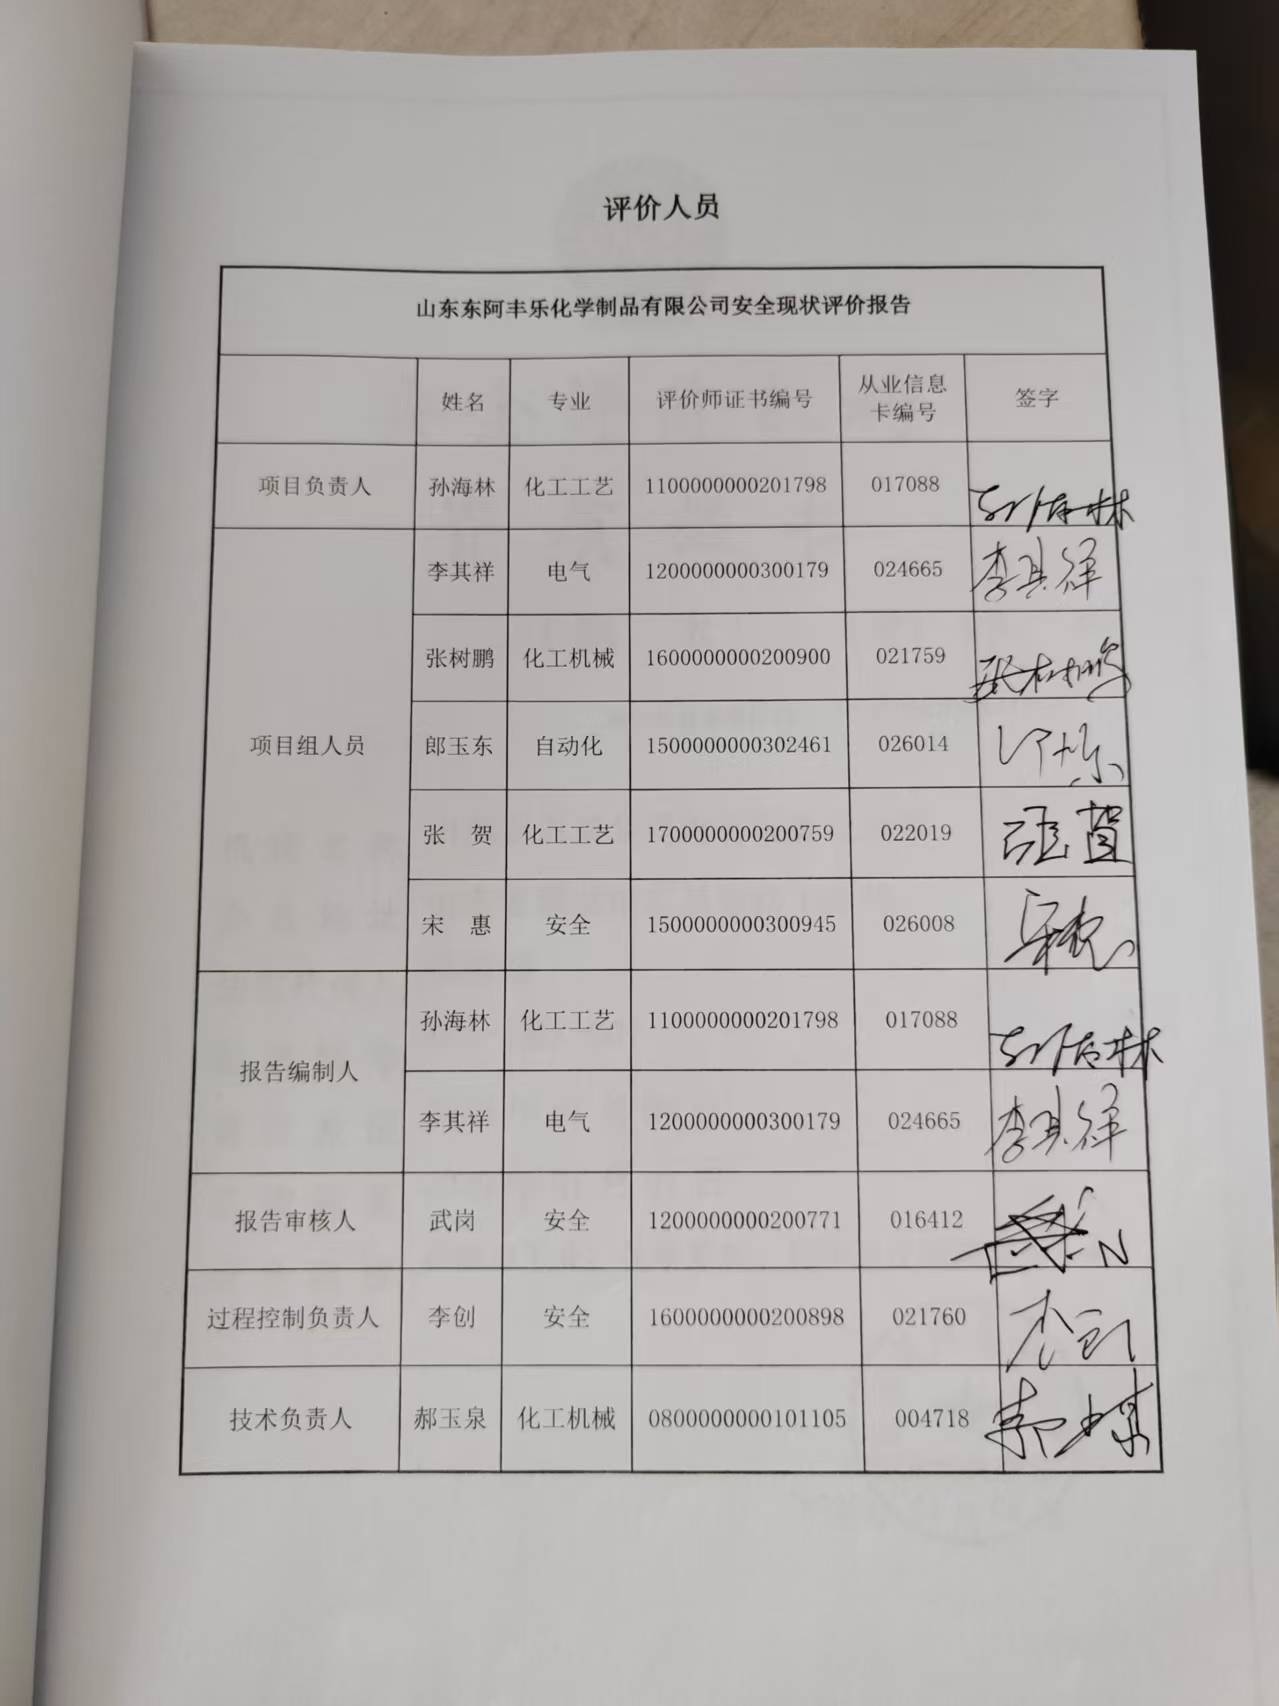 评价人员
山东东阿丰乐化学制品有限公司安全现状评价报告
姓名 专业 评价师证书编号 从业信息卡编号 签字
项目负责人 孙海林 化工工艺 1100000000201798 017088 孙海林
项目组人员 李其祥 电气 1200000000300179 024665 李其祥
张树鹏 化工机械 1600000000200900 021759 张树鹏
郎玉东 自动化 1500000000302461 026014
张 贺 化工工艺 1700000000200759 022019 张贺
宋 惠 安全 1500000000300945 026008 宋惠
报告编制人 孙海林 化工工艺 1100000000201798 017088 孙海林
李其祥 电气 1200000000300179 024665 李其祥
报告审核人 武岗 安全 1200000000200771 016412
过程控制负责人 李创 安全 1600000000200898 021760 李创
技术负责人 郝玉泉 化工机械 0800000000101105 004718 郝玉泉